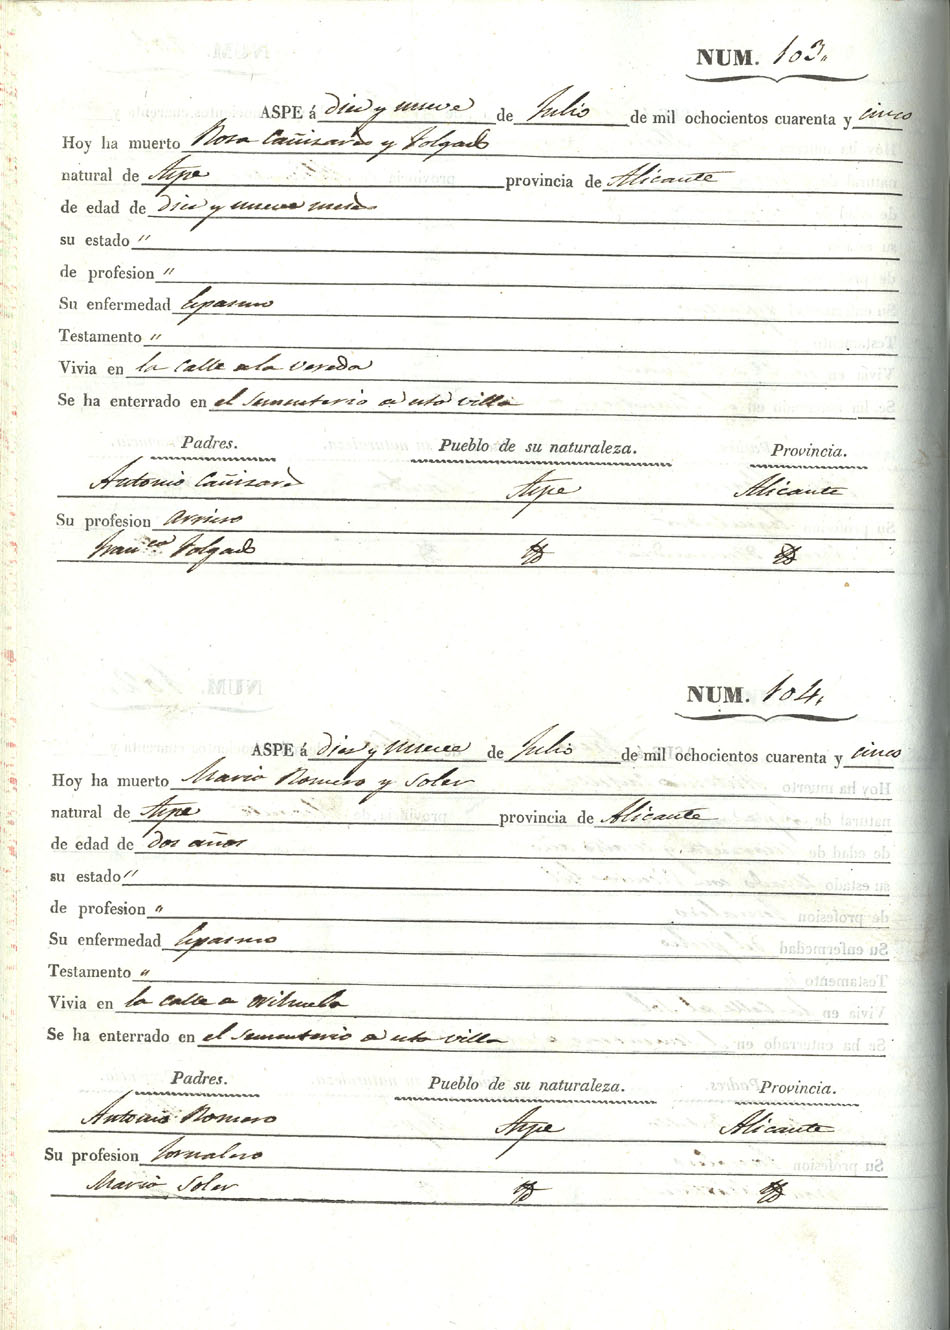 NUM. 103.
ASPE á diez y nueve de Julio de mil ochocientos cuarenta y cinco
Hoy ha muerto Rosa Cañizares y Folgado
natural de Aspe provincia de Alicante
de edad de diez y nueve meses
su estado "
de profesion "
Su enfermedad Espasmo
Testamento "
Vivia en la calle de la vereda
Se ha enterrado en el sementerio de esta villa
Padres. Pueblo de su naturaleza. Provincia.
Antonio Cañizares Aspe Alicante
Su profesion arriero
Fran.ca Folgado
NUM. 104.
ASPE á diez y nueve de Julio de mil ochocientos cuarenta y cinco
Hoy ha muerto Maria Romero y Soler
natural de Aspe provincia de Alicante
de edad de dos años
su estado "
de profesion "
Su enfermedad Espasmo
Testamento "
Vivia en la calle de Orihuela
Se ha enterrado en el sementerio de esta villa
Padres. Pueblo de su naturaleza. Provincia.
Antonio Romero Aspe Alicante
Su profesion Jornalero
Maria Soler